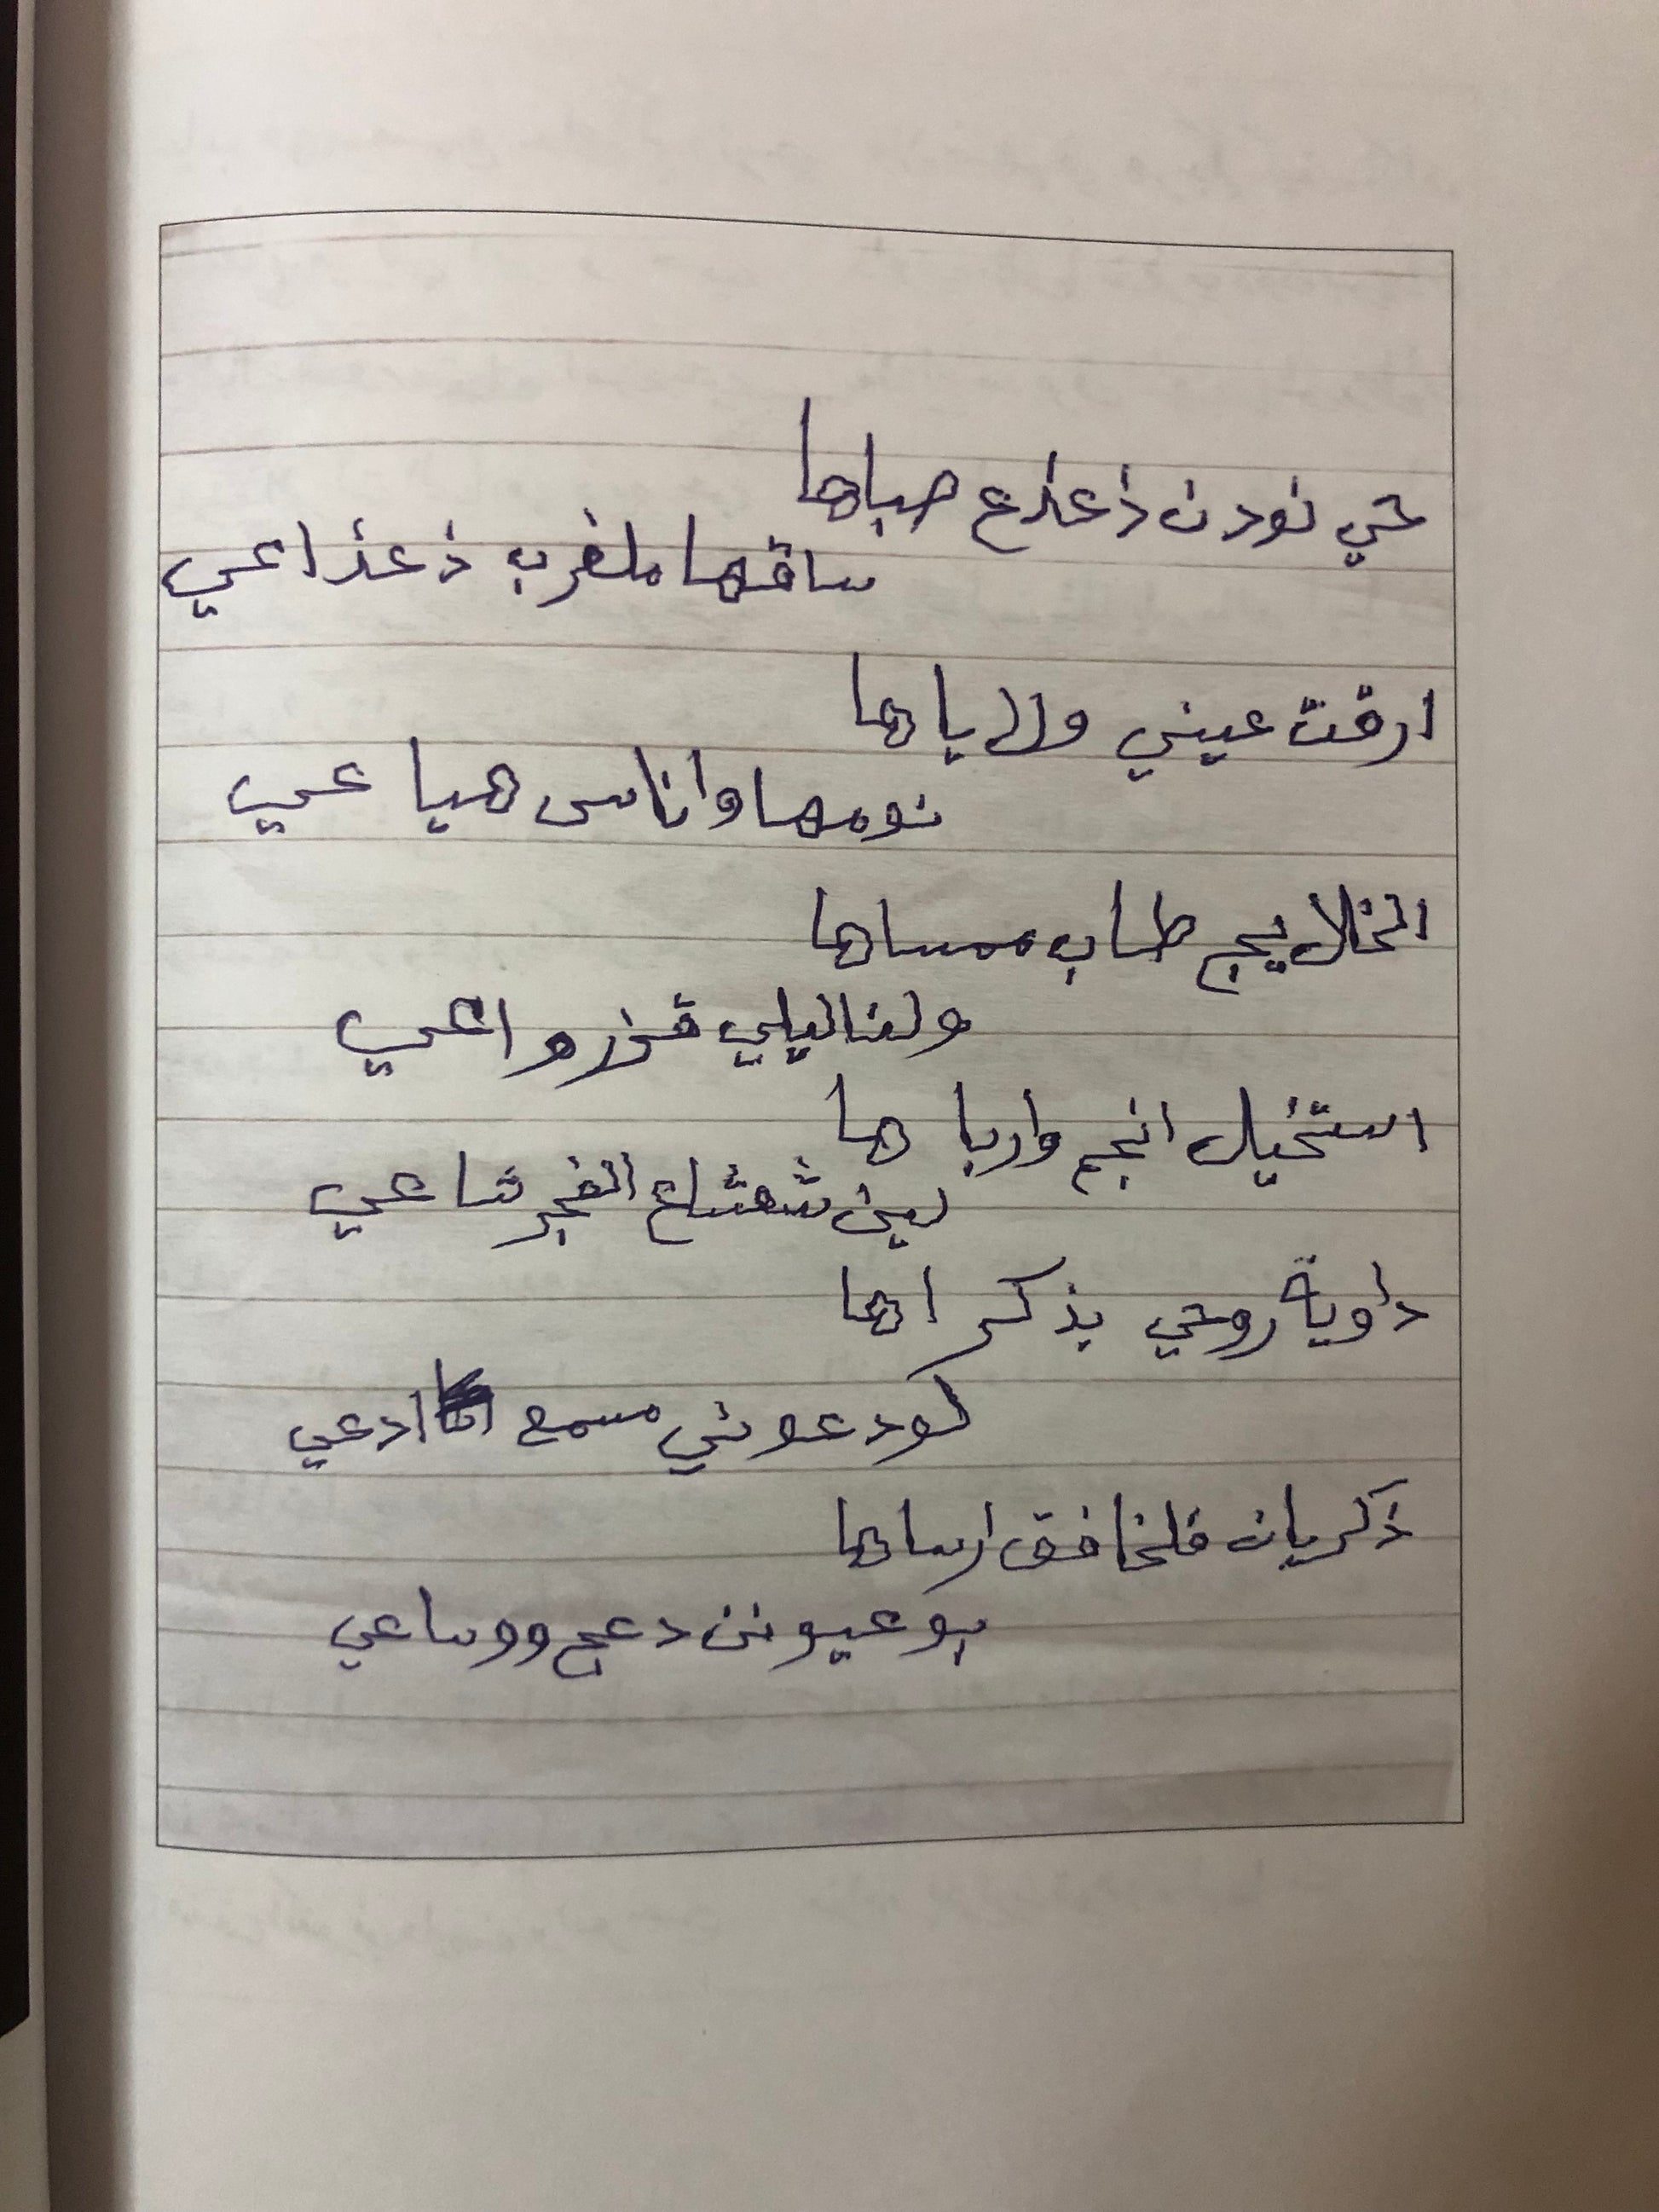 حي نودن ذعذع صباها
ساقها ملغرب ذعذاعي
ارقت عيني ولا ياها
نومها واناس هيا عي
الخلايج طاب ممساها
ولنا ليلي قزر واعي
استخيل انجم واربا ها
لين شعشاع الفجر شاعي
داوية روحي بذكر اها
لودعوني مسمع ادعي
ذكريات فلخافق ارساها
بو عيونن دعج ووساعي